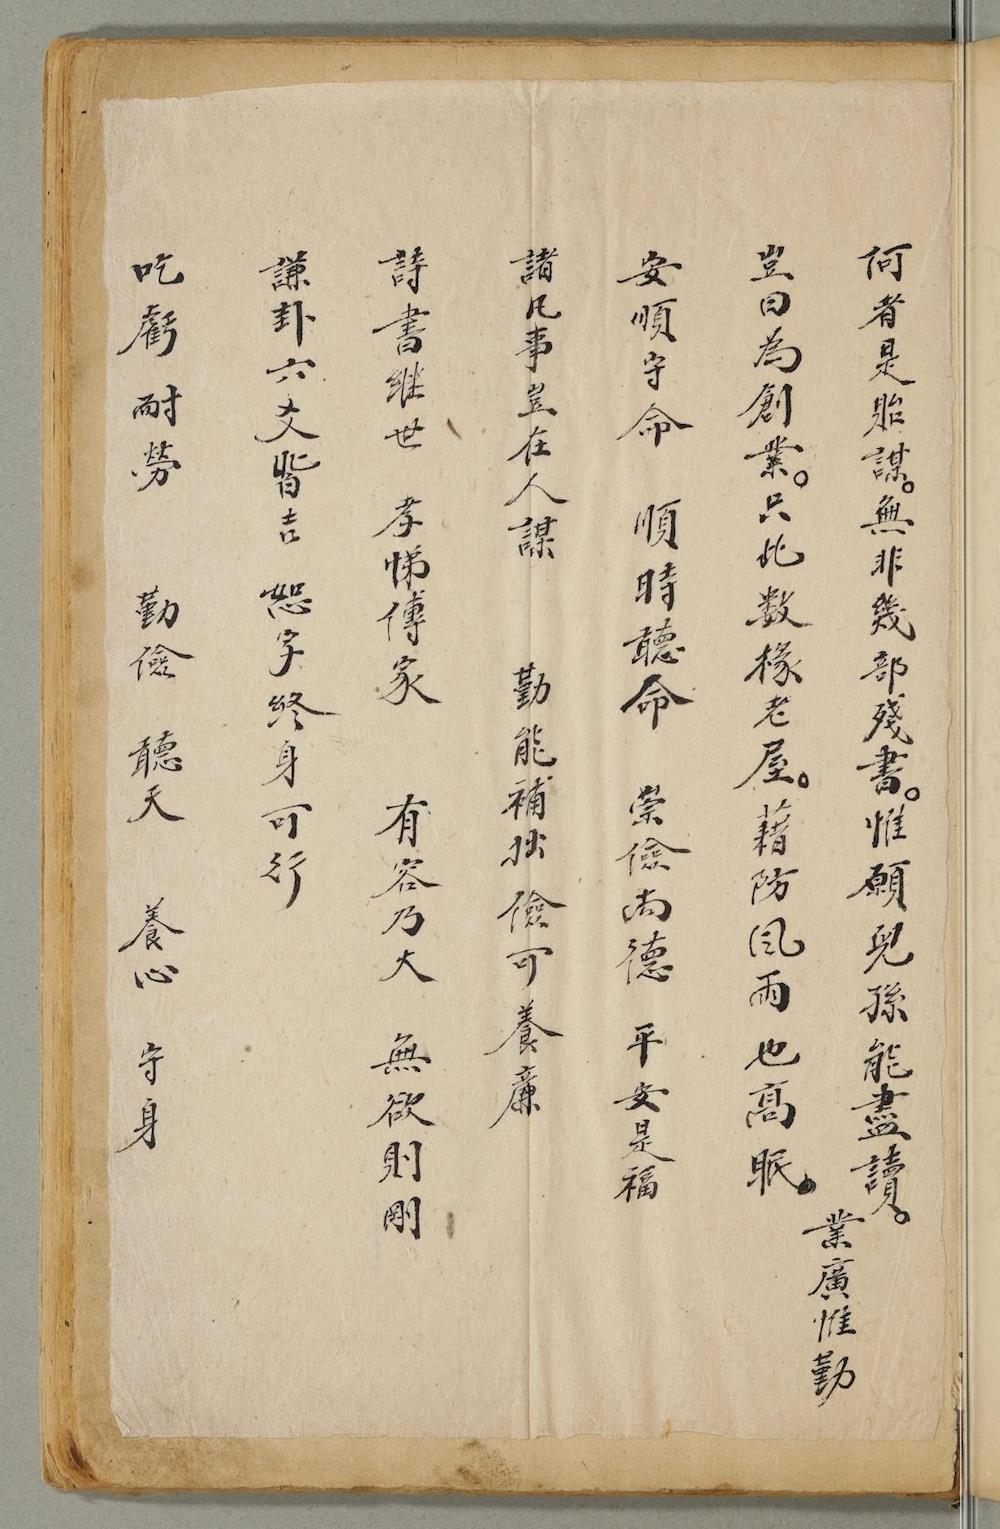 何者是貽謀。無非幾部殘書。惟願兒孫能盡讀。
業廣惟勤
豈曰為創業。只此数椽老屋。藉防風雨也高眠。
安順守命　順時聽命　崇儉尚德　平安是福
諸凡事豈在人謀　勤能補拙　儉可養廉
詩書継世　孝悌傳家　有容乃大　無欲則剛
謙卦六爻皆吉　恕字終身可行
吃虧　耐勞　勤儉　聽天　養心　守身